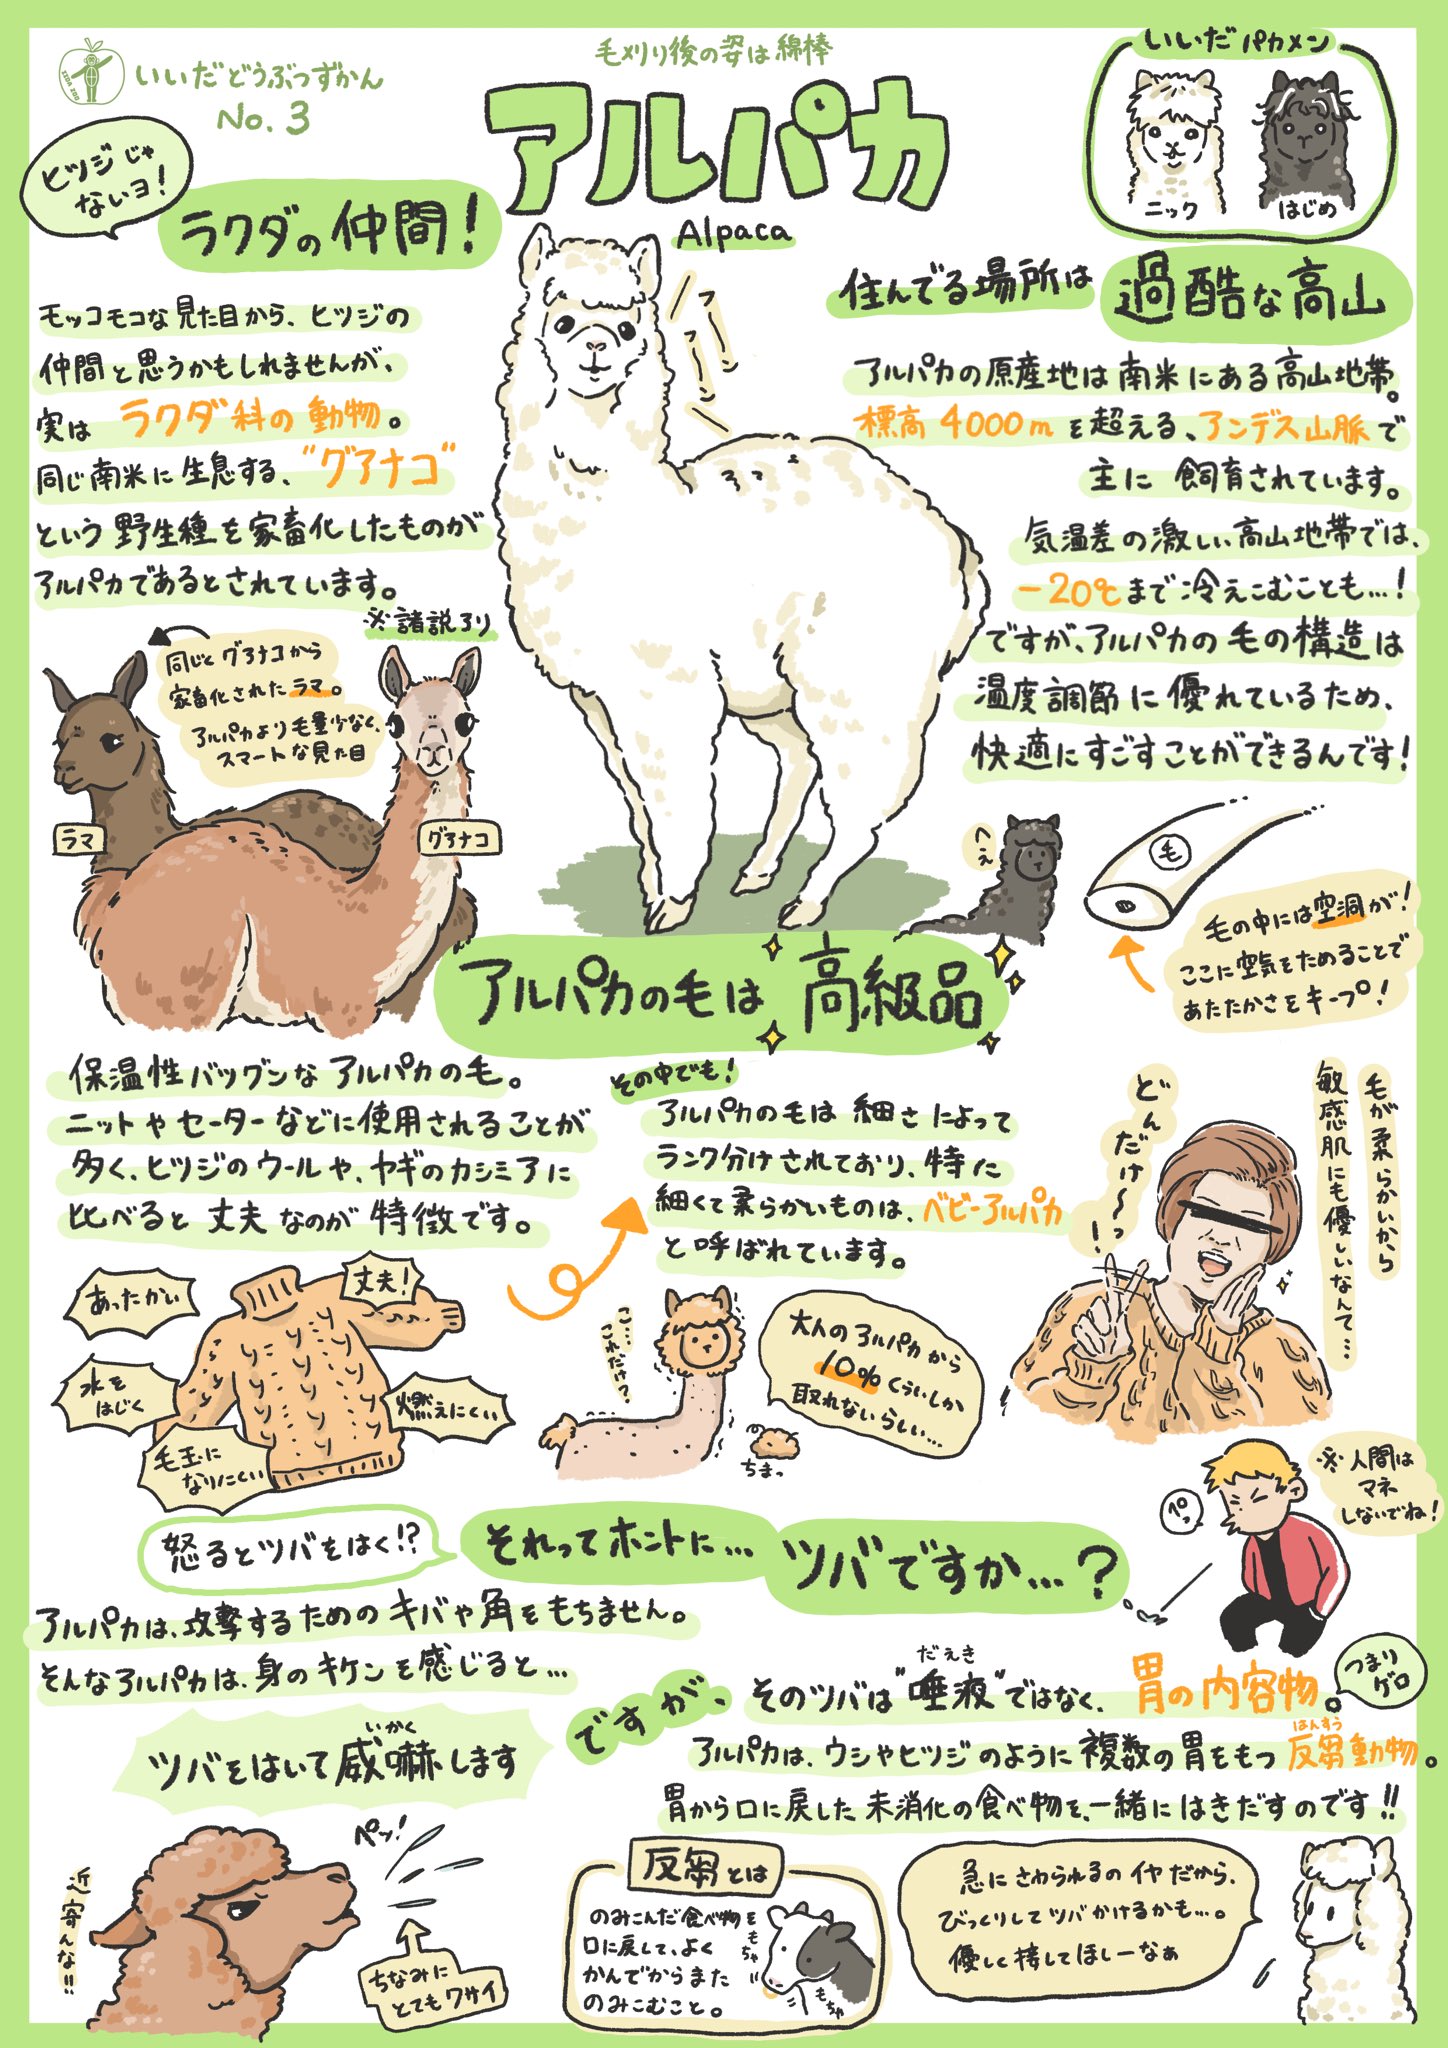 いいだどうぶつずかん
No.3
IIDA ZOO
毛刈り後の姿は綿棒
アルパカ
Alpaca
フーン
フーン
いいだパカメン
ニック
はじめ
ヒツジじゃ
ないヨ!
ラクダの仲間!
モッコモコな見た目から、ヒツジの
仲間と思うかもしれませんが、
実は ラクダ科の動物。
同じ南米に生息する、"グアナコ"
という野生種を家畜化したものが
アルパカであるとされています。
※諸説アリ
同じくグアナコから
家畜化されたラマ。
アルパカより毛量少なく、
スマートな見た目
ラマ
グアナコ
住んでる場所は 過酷な高山
アルパカの原産地は南米にある高山地帯。
標高4000mを超える、アンデス山脈で
主に 飼育されています。
気温差の激しい高山地帯では、
-20℃まで冷えこむことも…!
ですが、アルパカの毛の構造は
温度調節に優れているため、
快適にすごすことができるんです!
へぇ
毛
毛の中には空洞が!
ここに空気をためることで
あたたかさをキープ!
アルパカの毛は 高級品
保温性バツグンなアルパカの毛。
ニットやセーターなどに使用されることが
多く、ヒツジのウールや、ヤギのカシミアに
比べると丈夫なのが特徴です。
あったかい
丈夫!
水を
はじく
燃えにくい
毛玉に
なりにくい
その中でも!
アルパカの毛は細さによって
ランク分けされており、特に
細くて柔らかいものは、ベビーアルパカ
と呼ばれています。
こ…
これだけ?
ちまっ
大人のアルパカから
10%くらいしか
取れないらしい…
毛が柔らかいから
敏感肌にも優しいなんて…
どんだけ〜っ!
怒るとツバをはく!?
それってホントに…
ツバですか…?
ペッ
※人間は
マネ
しないでね!
アルパカは、攻撃するためのキバや角をもちません。
そんなアルパカは、身のキケンを感じると…
いかく
ツバをはいて威嚇します
ペッ!
近寄んな!!
ちなみに
とてもクサイ
ですが、
だえき
そのツバは"唾液"ではなく、胃の内容物。
つまり
ゲロ
はんすう
アルパカは、ウシやヒツジのように複数の胃をもつ反芻動物。
胃から口に戻した未消化の食べ物を、一緒にはきだすのです!!
反芻とは
のみこんだ食べ物を
口に戻して、よく
かんでからまた
のみこむこと。
もちゃ
もちゃ
急にさわられるのイヤだから、
びっくりしてツバかけるかも…。
優しく接してほしーなぁ